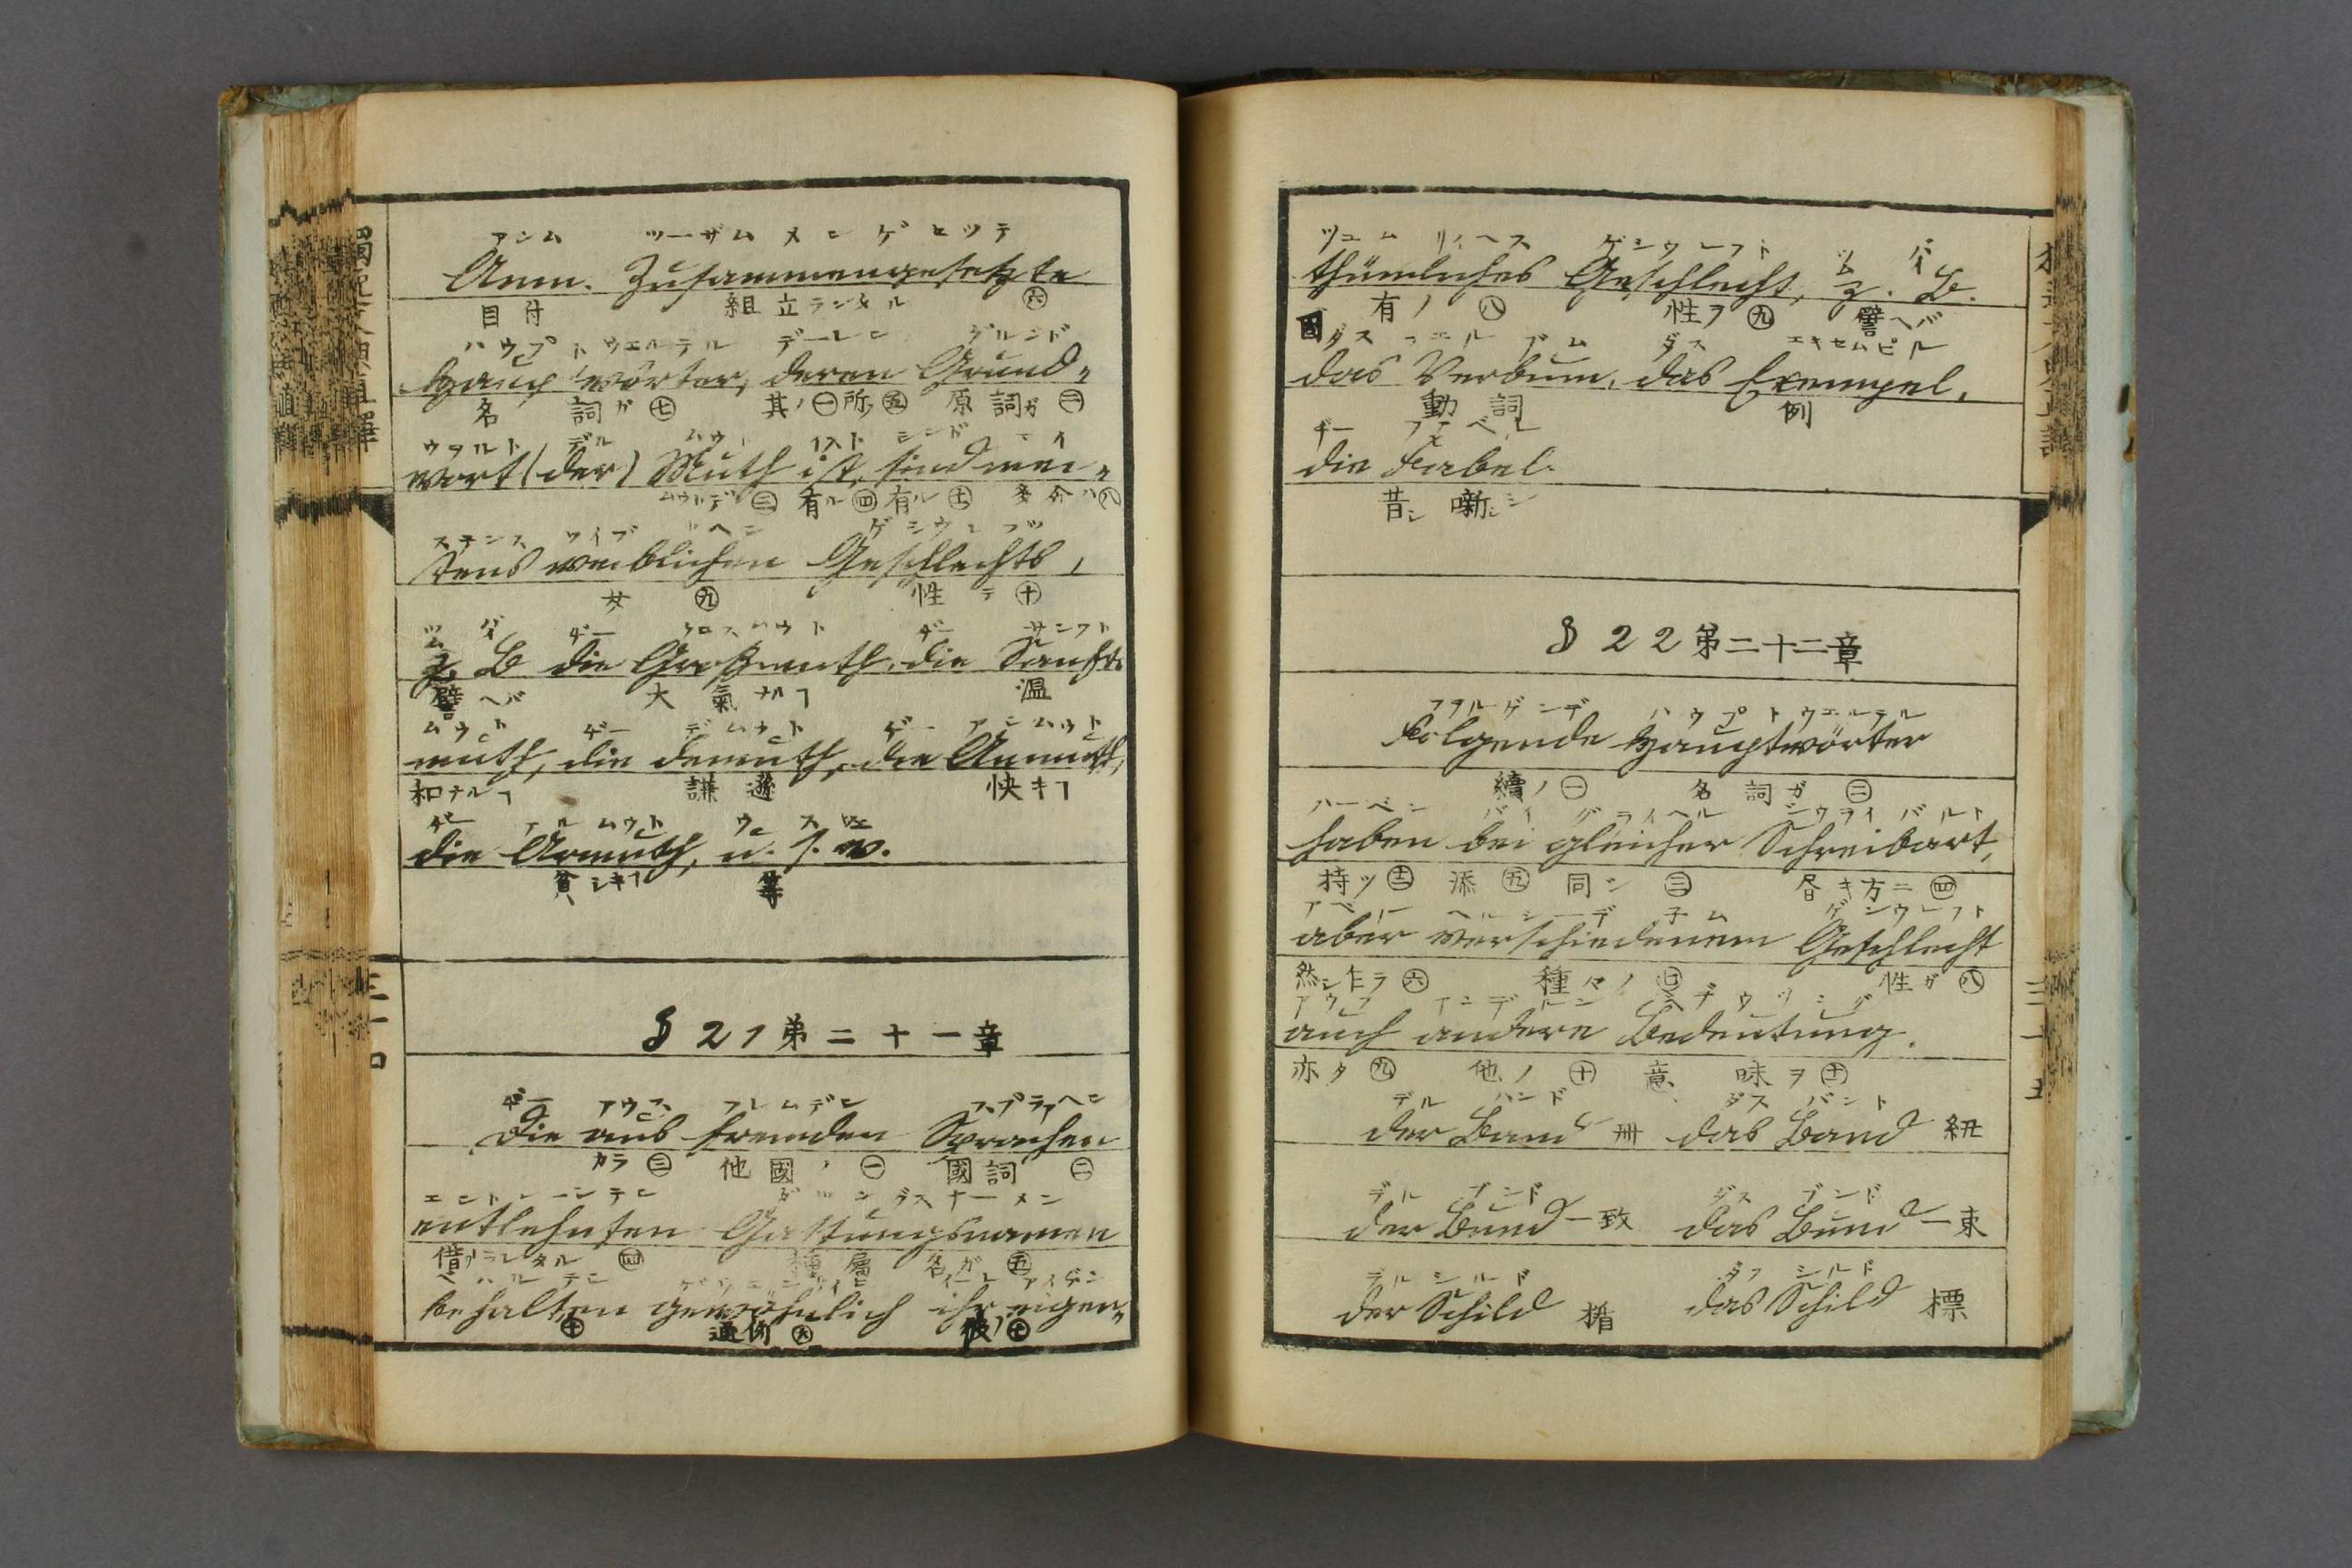 アンム ツーザムメンゲセツテ
Anm. Zusammengesetzte
目付 組立ラレタル ㊅
ハウプトウエルテル デーレン グルンド
Hauptwörter, deren Grund-
名詞ガ ㊆ 其ノ ㊀ 所ノ ㊄ 原詞ガ ㊁
ウヲルト デル ムウト イスト シンド マイ
wort (der) Muth ist, sind mei-
ムウトデ ㊂ 有ル ㊃ 有ル 多分ハ ㊇
ステンス ワイブリヘン ゲシウレフツ
stens weiblichen Geschlechts,
女 ㊈ 性デ ㊉
ツム バイ ヂー グロスムウト ヂー サンフト
z. B die Großmuth, die Sanft-
譬ヘバ 大氣ナルヿ 温
ムウト ヂー デムウト ヂー アンムウト
muth, die Demuth, die Anmuth,
和ナルヿ 謙遜 快キヿ
ヂー アルムウト ウ ス ウエ
die Armuth, u. s. w.
貧シキヿ 等
§ 21 第二十一章
ヂー アウス フレムデン スプラアヘン
Die aus fremden Sprachen
カラ ㊂ 他國ノ ㊀ 國詞 ㊁
エントレーンテン ガツツングスナーメン
entlehnten Gattungsnamen
借リラレタル ㊃ 種屬名ガ ㊄
ベハルテン ゲウエーンリヒ イール アイゲン
behalten gewöhnlich ihr eigen-
㊉ 通例 ㊅ 彼ノ ㊆
三十四
ツユムリイヘス ゲシウレフト ツム バイ
thümliches Geschlecht, z. B.
有ノ ㊇ 性ヲ ㊈ 譬ヘバ
ダス フエルブム ダス エキセムピル
das Verbum, das Exempel,
動詞 例
ヂー フアーベル
die Fabel.
昔シ噺シ
§ 22 第二十二章
フヲルゲンデ ハウプトウエルテル
Folgende Hauptwörter
續ノ ㊀ 名詞ガ ㊁
ハーベン バイ グライヘル シウライバルト
haben bei gleicher Schreibart,
持ツ 添 ㊄ 同シ ㊂ 書キ方ニ ㊃
アベル ヘルシーデネム ゲシウレフト
aber verschiedenem Geschlecht
然シ乍ラ ㊅ 種々ノ ㊆ 性ガ ㊇
アウフ アンデルン ベデウツング
auch andere Bedeutung.
亦タ ㊈ 他ノ ㊉ 意味ヲ
デル バンド ダス バント
der Band 冊 das Band 紐
デル ブンド ダス ブンド
der Bund 一致 das Bund 一束
デル シルド ダス シルド
der Schild 楯 das Schild 標
三十五